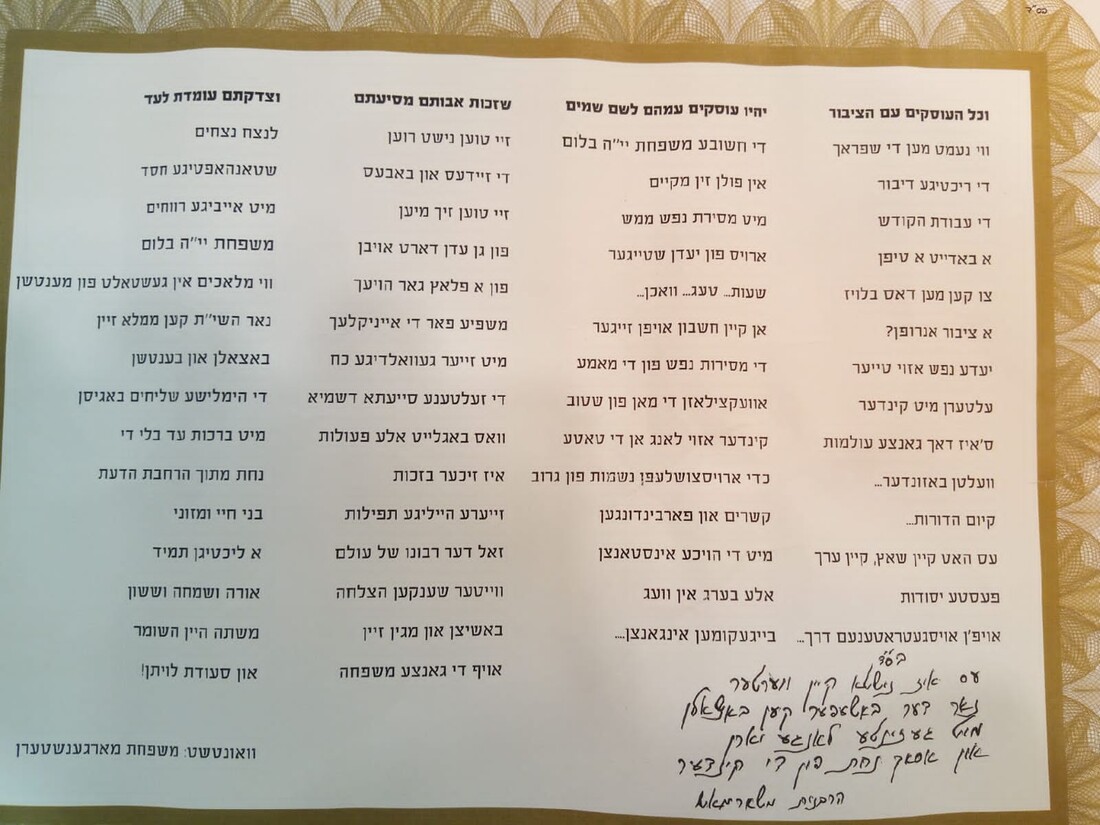 בס"ד
וכל העוסקים עם הציבור
ווי נעמט מען די שפראך
די ריכטיגע דיבור
די עבודת הקודש
א באדייט א טיפן
צו קען מען דאס בלויז
א ציבור אנרופן?
יעדע נפש אזוי טייער
עלטערן מיט קינדער
ס'איז דאך גאנצע עולמות
וועלטן באזונדער...
קיום הדורות...
עס האט קיין שאץ, קיין ערך
פעסטע יסודות
אויפ'ן אויסגעטראטענעם דרך...
יהיו עוסקים עמהם לשם שמים
די חשובע משפחת יי"ה בלום
אין פולן זין מקיים
מיט מסירת נפש ממש
ארויס פון יעדן שטייגער
שעות... טעג... וואכן...
אן קיין חשבון אויפן זייגער
די מסירות נפש פון די מאמע
אוועקצילאזן די מאן פון שטוב
קינדער אזוי לאנג אן די טאטע
כדי ארויסצושלעפן נשמות פון גרוב
קשרים און פארבינדונגען
מיט די הויכע אינסטאנצן
אלע בערג אין וועג
בייגעקומען אינגאנצן....
שזכות אבותם מסיעתם
זיי טוען נישט רוען
די זיידעס און באבעס
זיי טוען זיך מיען
פון גן עדן דארט אויבן
פון א פלאץ גאר הויעך
משפיע פאר די אייניקלעך
מיט זייער געוואלדיגע כח
די זעלטענע סייעתא דשמיא
וואס באגלייט אלע פעולות
איז זיכער בזכות
זייערע הייליגע תפילות
זאל דער רבונו של עולם
ווייטער שענקען הצלחה
באשיצן און מגין זיין
אויף די גאנצע משפחה
וצדקתם עומדת לעד
לנצח נצחים
שטאנהאפטיגע חסד
מיט אייביגע רווחים
משפחת יי"ה בלום
ווי מלאכים אין געשטאלט פון מענטשן
נאר השי"ת קען ממלא זיין
באצאלן און בענטשן
די הימלישע שליחים באגיסן
מיט ברכות עד בלי די
נחת מתוך הרחבת הדעת
בני חיי ומזוני
א ליכטיגן תמיד
אורה ושמחה וששון
משתה היין השומר
און סעודת לויתן!
וואונטשט: משפחת מארגענשטערן
בס"ד
עס איז נישטא קיין ווערטער
נאר דער באשעפער קען באצאלן
מיט געזינטע לאנגע יארן
און אסאך נחת פון די קינדער
הרבנית